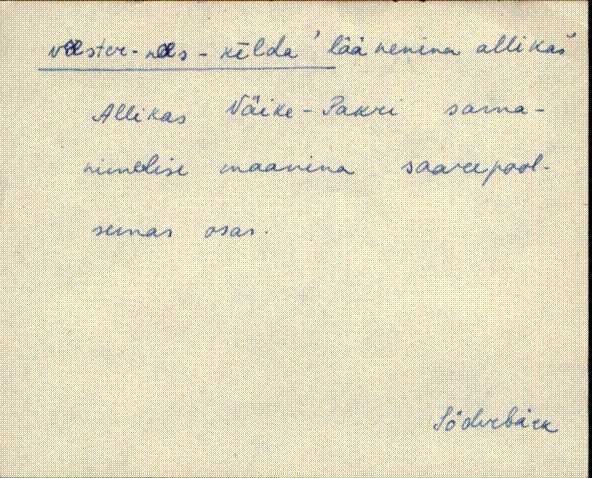 væster-næs-kēlda 'lääneninaallikas'
Allikas Väike-Pakri sama-
nimelise maanina saarepool-
semas osas.
Söderbäck